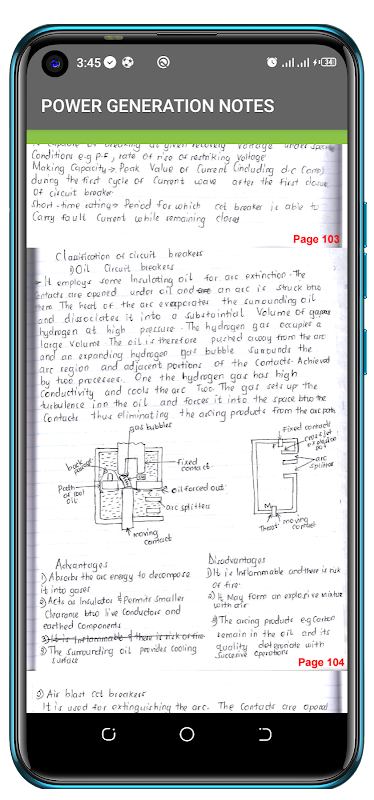 3:45
34
POWER GENERATION NOTES
Conditions e.g P.F, rate of rise of restriking voltage
Making Capacity → Peak Value of Current (including d.c Comp)
during the first cycle of Current wave after the first closure
Of circuit breaker
Short-time rating → Period for which cct breaker is able to
Carry fault Current while remaining closed
Page 103
Classification of circuit breakers
1) Oil Circuit breakers
- It employs some Insulating oil for arc extinction. The
contacts are opened under oil and are an arc is struck btw
them The heat of the arc evaporates the surrounding oil
and dissociates it into a substaintial Volume of gaseous
hydrogen at high pressure. The hydrogen gas occupies a
large Volume The oil is therefore pushed away from the arc
and an expanding hydrogen gas bubble surrounds the
arc region and adjacent portions of the Contacts. Achieved
by two processes. One the hydrogen gas has high
Conductivity and cools the arc Two. The gas sets up the
turbulence inn the oil and forces it into the space btw the
Contacts thus eliminating the arcing products from the arc path
gas bubbles
back passage
Path of cool oil
fixed contact
oil forced out
arc splitters
moving contact
Fixed contacts
cross jet explosion pot
arc splitter
Throat
moving contact
Advantages
1) Absorbs the arc energy to decompose
it into gases
2) Acts as Insulator & Permits Smaller
Clearance btw live Conductors and
earthed components
3) It is Inflammable & there is risk of fire
3) The surrounding oil provides cooling
surface
Disadvantages
1) It is Inflammable and there is risk
of fire
2) It May form an explosive mixture
with air
3) The arcing products e.g Carbon
remain in the oil and its
quality deteriorate with
Successive operations
Page 104
2) Air blast cct breakers
It is used for extinguishing the arc. The Contacts are opened